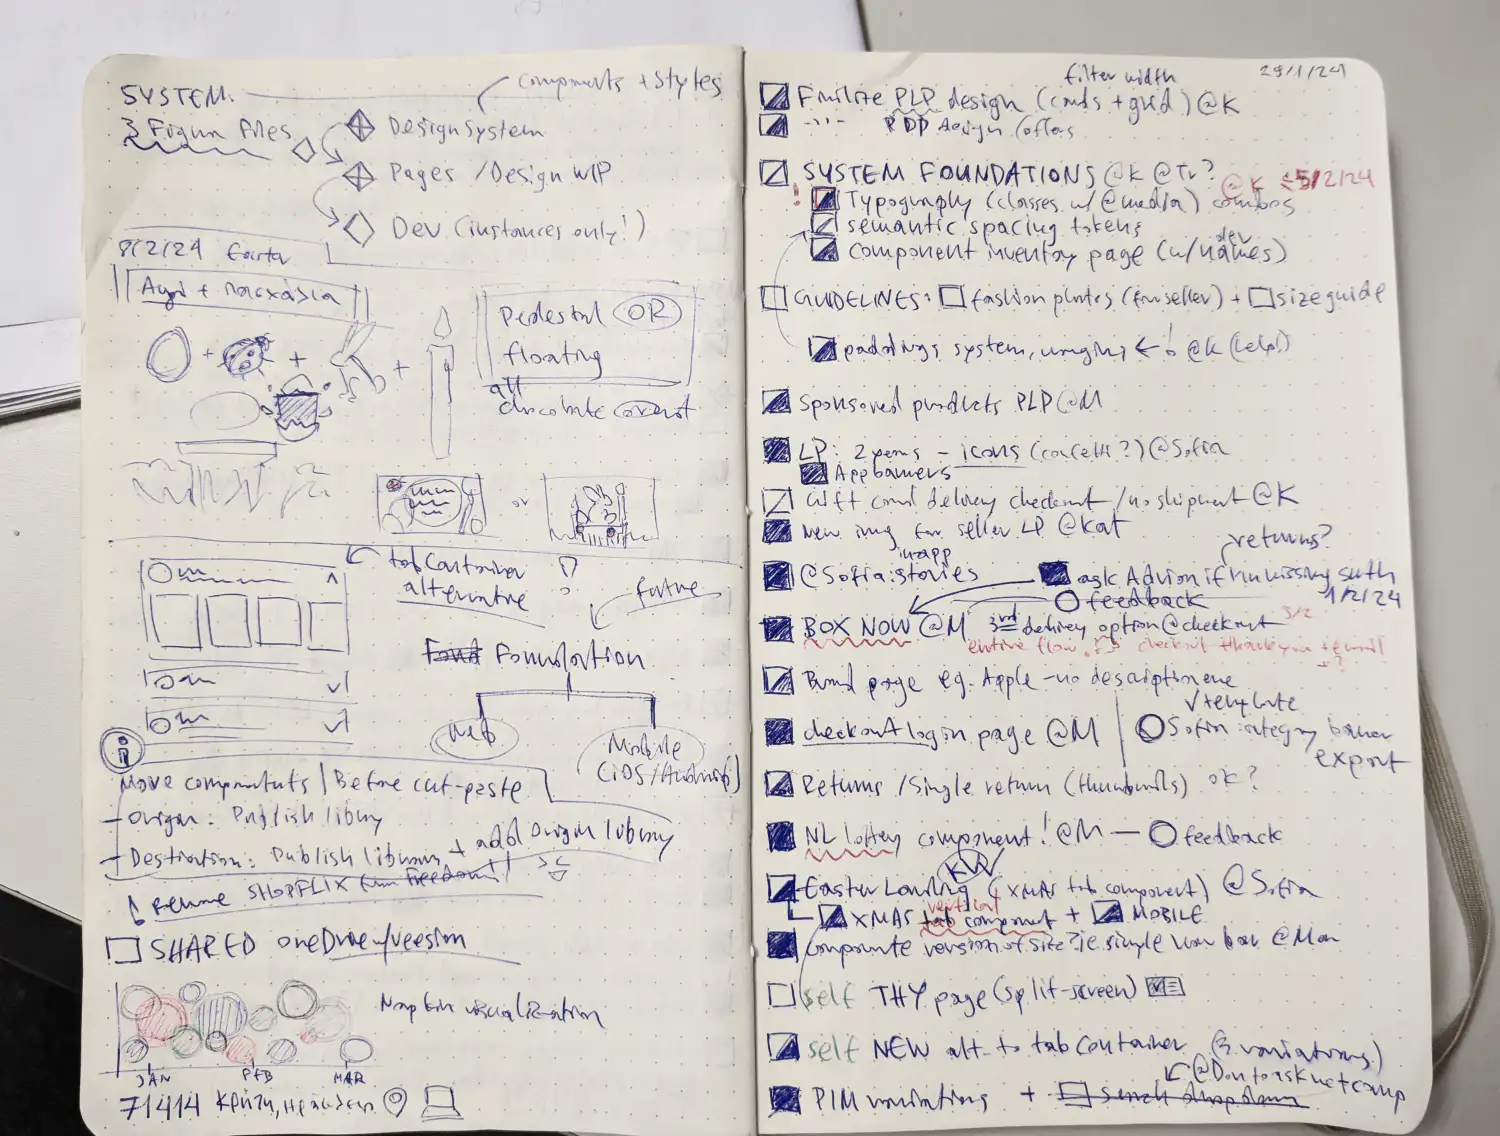 SYSTEM.
components + styles
3 Figma files
Design system
Pages / Design WIP
Dev (instances only!)
8/2/24 Easter
Pedestal OR
floating
all
chocolate
or
tab Container
alternative
?
future
Foundation
Web
Mobile
(iOS/Android)
Move components | Before cut-paste
- Origin: Publish library
- Destination: Publish library + add Origin library
! Rename SHOPFLIX
SHARED oneDrive/version
Napkin visualization
JAN FEB MAR
71414
29/1/24
filter width
Finalize PLP design (cards + grid) @K
-''- PDP design
SYSTEM FOUNDATIONS @K @Tv?
@K 5/2/24
! Typography (classes w/ @media) combos
semantic spacing tokens
component inventory page (w/ dev names)
GUIDELINES: fashion photos (for seller) + size guide
paddings system, margins ← @K (help!)
Sponsored products PLP @M
LP: 2 perms - icons (confetti?) @Sofia
App banners
Gift card delivery checkout / no shipment @K
New img for seller LP @Kat
inapp
@Sofia: stories
returns?
ask Adrion if I'm missing smth
1/2/24
feedback
BOX NOW @M 3rd delivery option @checkout
entire flow. checkout thank you + email
Brand page eg. Apple - no description
template
checkout login page @M
Sofia: integry banner
export
Returns / Single return (thumbnails) ok?
NL lottery component! @M — feedback
Easter Landing (XMAS tab component) @Sofia
vertical
XMAS tab component + MOBILE
@Man
self THY page (split-screen)
self NEW alt. to tab Container (3 variations)
PIM variations +